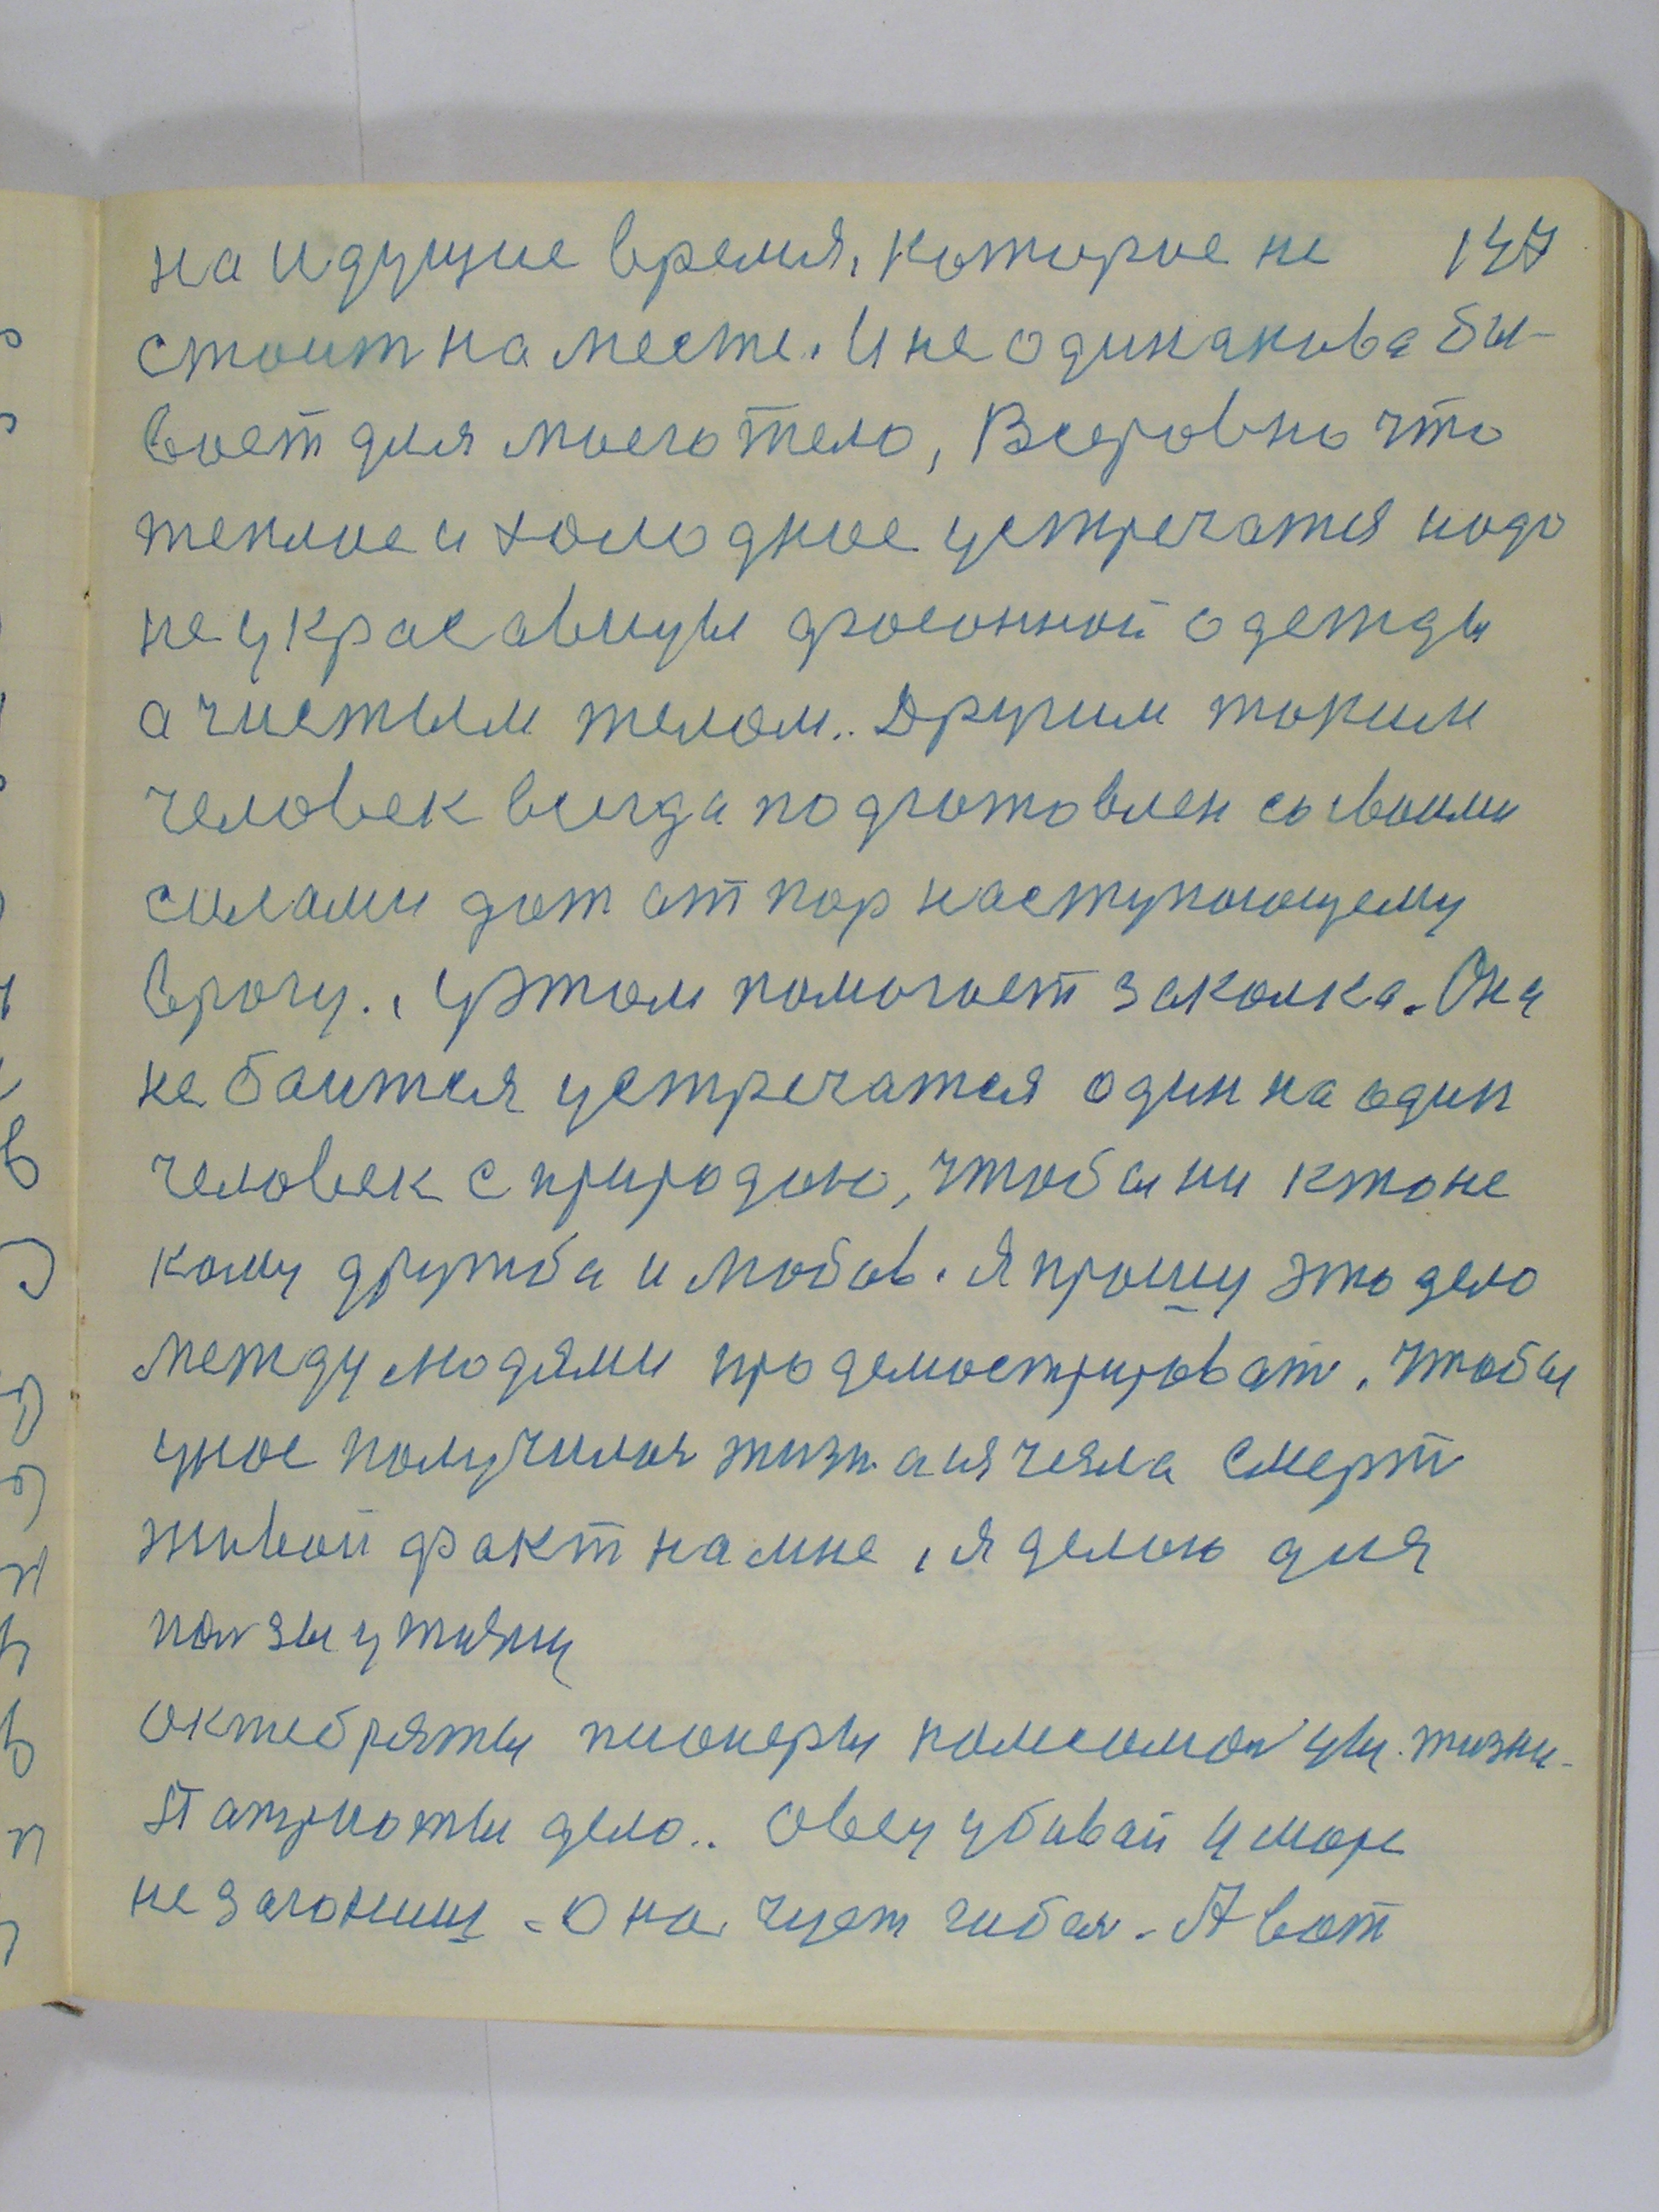 на идущие время, которое не 147
стоит на месте. И не одинакова бы-
воет для моего тело, Всеровно что
теплое и холодное устречатся надо
не у красавицы фосонной одежды
а чистым телом.. Другим таким
человек всигда подготовлен со своими
силами дат отпор наступающему
врогу., у этом помогает закалка. Она
не боится устречатся один на один
человек с природою, чтобы ни кто не
кому дружба и любов. Я прошу это дело
между людями продемострироват. чтобы
у нас получилася жизн а ни смерт
живой факт на мне, я делаю для
ползы у
октебряты пионеры комсомолцы. жизни-
Патриоты дело.. Овец убивай у море
не загониш. Она чует гибел. А вот